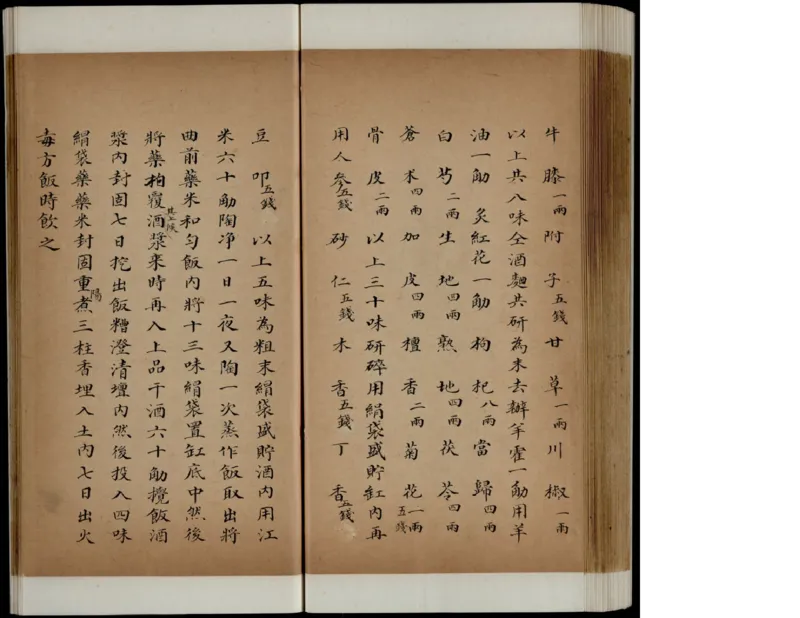 牛膝一兩 附子五錢 甘草一兩 川椒一兩
以上共八味仝酒麯共研為末去辦羊霍一觔用羊
油一觔 炙紅花一觔 枸杞八兩 當歸四兩
白芍二兩 生地四兩 熟地四兩 茯苓四兩
蒼术四兩 加皮四兩 檀香二兩 菊花一兩五錢
骨皮二兩 以上三十味研碎用絹袋盛貯缸內再
用人參五錢 砂仁五錢 木香五錢 丁香五錢
豆叩五錢 以上五味為粗末絹袋盛貯酒內用江
米六十觔陶净一日一夜又陶一次蒸作飯取出將
曲前藥米和匀飯內將十三味絹袋置缸底中然後
將藥枹覆酒漿來時再入上品干酒六十觔攪飯酒
漿內封固七日挖出飯糟澄清壜內然後投入四味
絹袋藥藥米封固重陽煮三柱香埋入土內七日出火
毒方飯時飲之